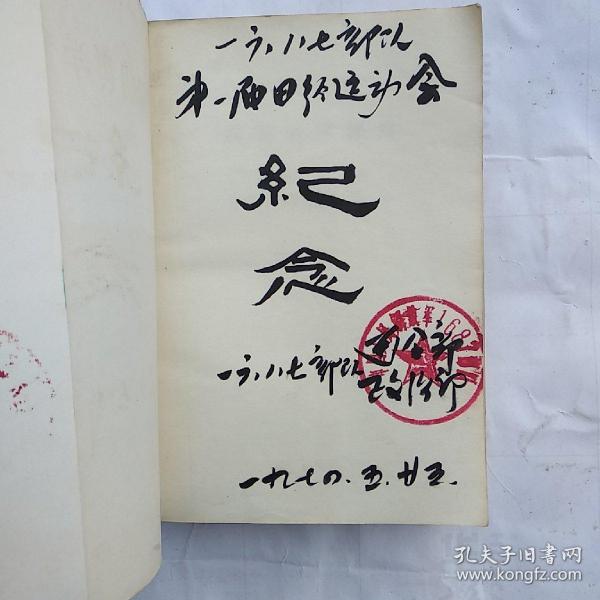 一六八七部队
第一届田径运动会
紀
念
一六八七部队
政治部
一九七四.五.廿五.
孔夫子旧书网
www.kongfz.com